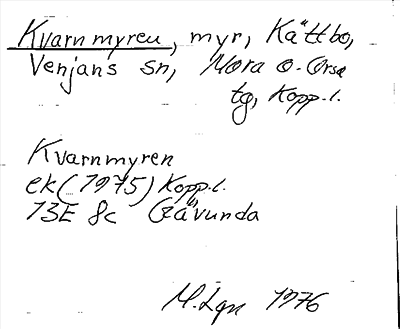 Kvarnmyren, myr, Kättbo,
Venjans sn, Mora o. Orsa
tg, Kopp.l.
Kvarnmyren
ek (1975) Kopp.l.
13E 8c Gävunda
M. Lgn 1976